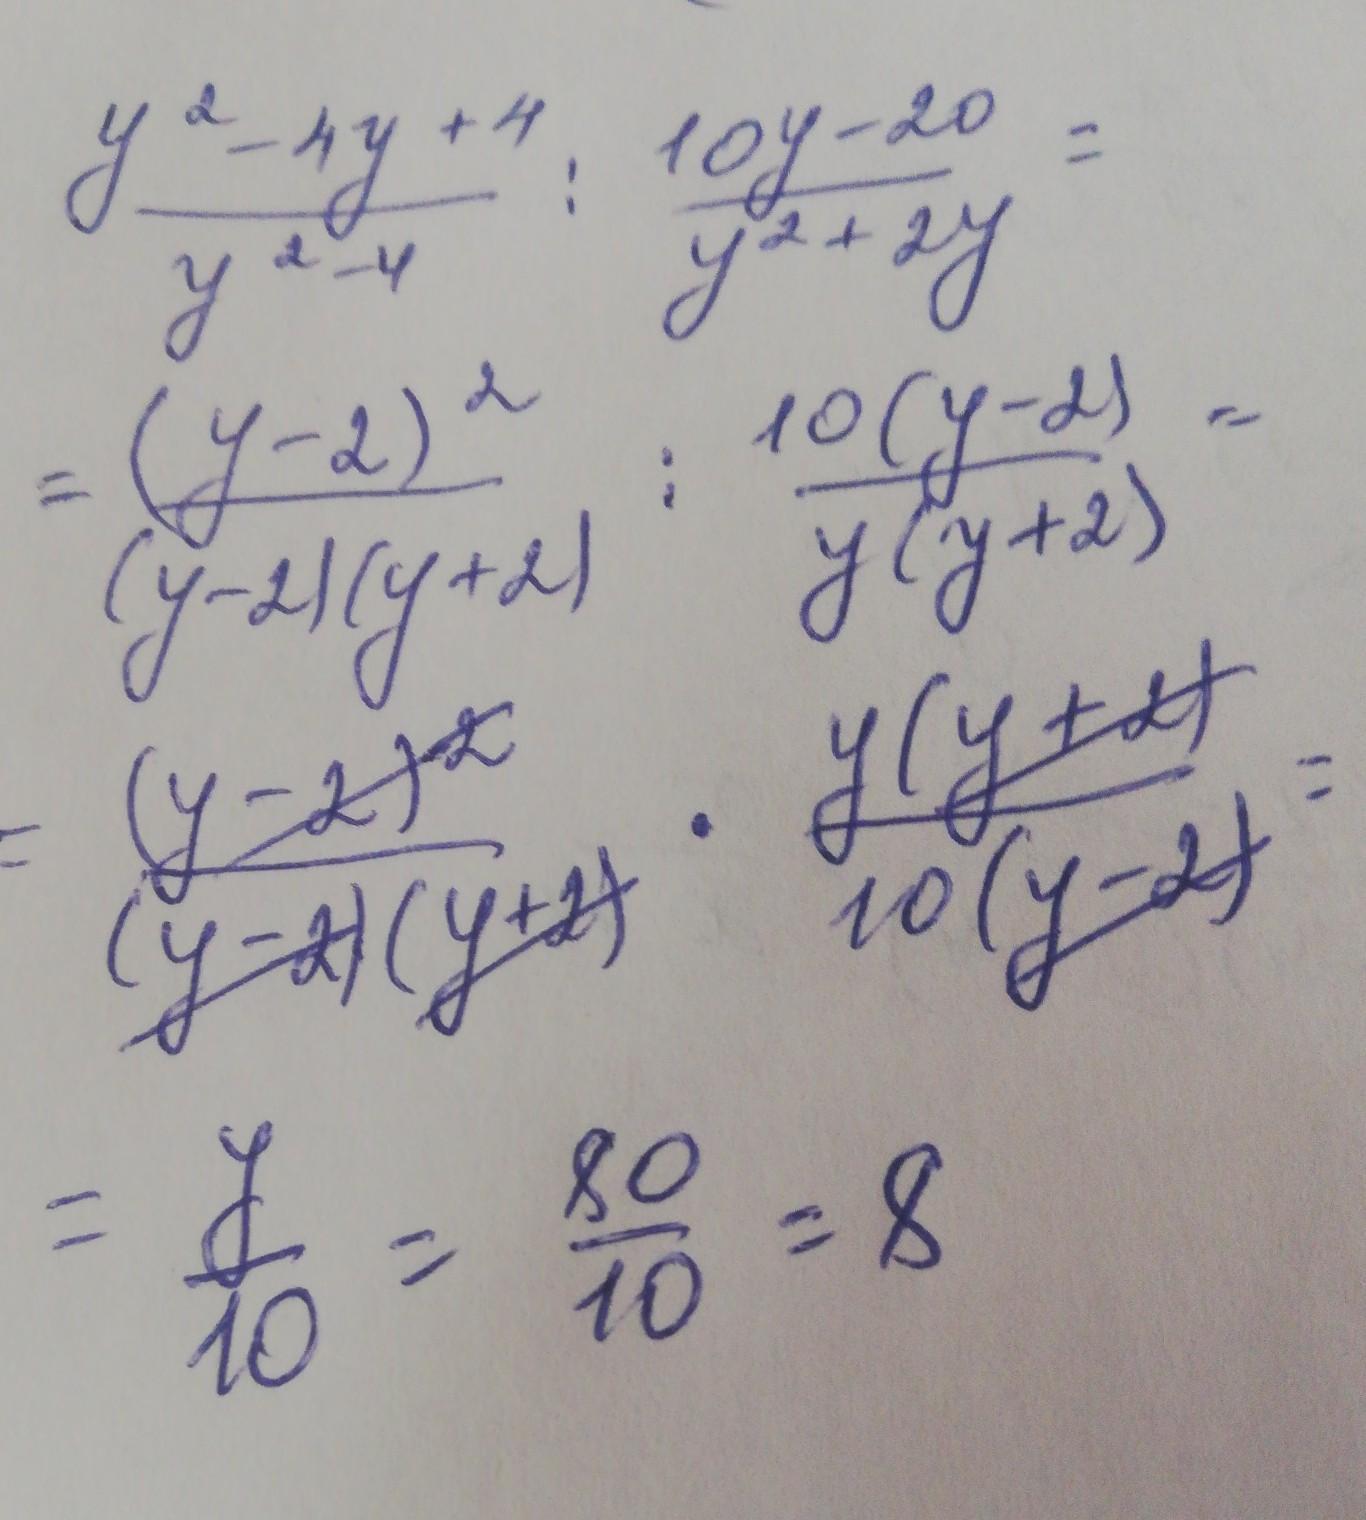 y² - 4y + 4 / y² - 4 : 10y - 20 / y² + 2y =
= (y - 2)² / (y - 2)(y + 2) : 10(y - 2) / y(y + 2) =
= (y - 2)² / (y - 2)(y + 2) · y(y + 2) / 10(y - 2) =
= y / 10 = 80 / 10 = 8